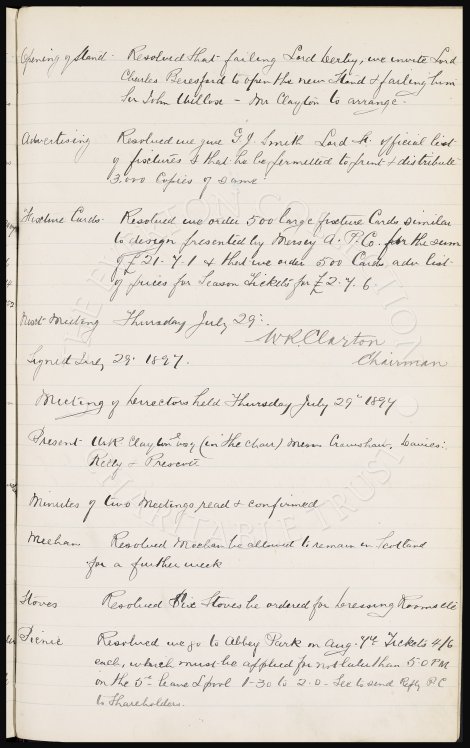 Opening of Stand Resolved that failing Lord Derby, we invite Lord
Charles Beresford to open the new Stand & failing him
Sir John Willox - Mr Clayton to arrange.
Advertising Resolved we give G. J. Smith Lord St. official list
of fixtures & that he be permitted to print & distribute
3.000 Copies of same
Fixture Cards Resolved we order 500 large fixture Cards similar
to design presented by Mersey A. P. Co. for the sum
of £21.7.1 & that we order 500 Cards, adv. list
of prices for Season Tickets for £2.7.6.
Next Meeting Thursday July 29th.
W.R. Clayton
Chairman
Signed July 29. 1897.
Meeting of Directors held Thursday July 29th 1897
Present W.R. Clayton Esq (in the chair) Messrs Crawshaw, Davies.
Kelly & Prescott
Minutes of two Meetings read & confirmed
Meehan Resolved Meehan be allowed to remain in Scotland
for a further week
Stoves Resolved Stoves be ordered for Dressing Rooms etc
Picnic Resolved we go to Abbey Park on Aug. 7th Tickets 4/6
each, which must be applied for not later than 5.0 P.M
on the 5th leave L'pool 1-30 to 2.0 - Sec to send Reply P.C
to Shareholders.
THE EVERTON COLLECTION
CHARITABLE TRUST